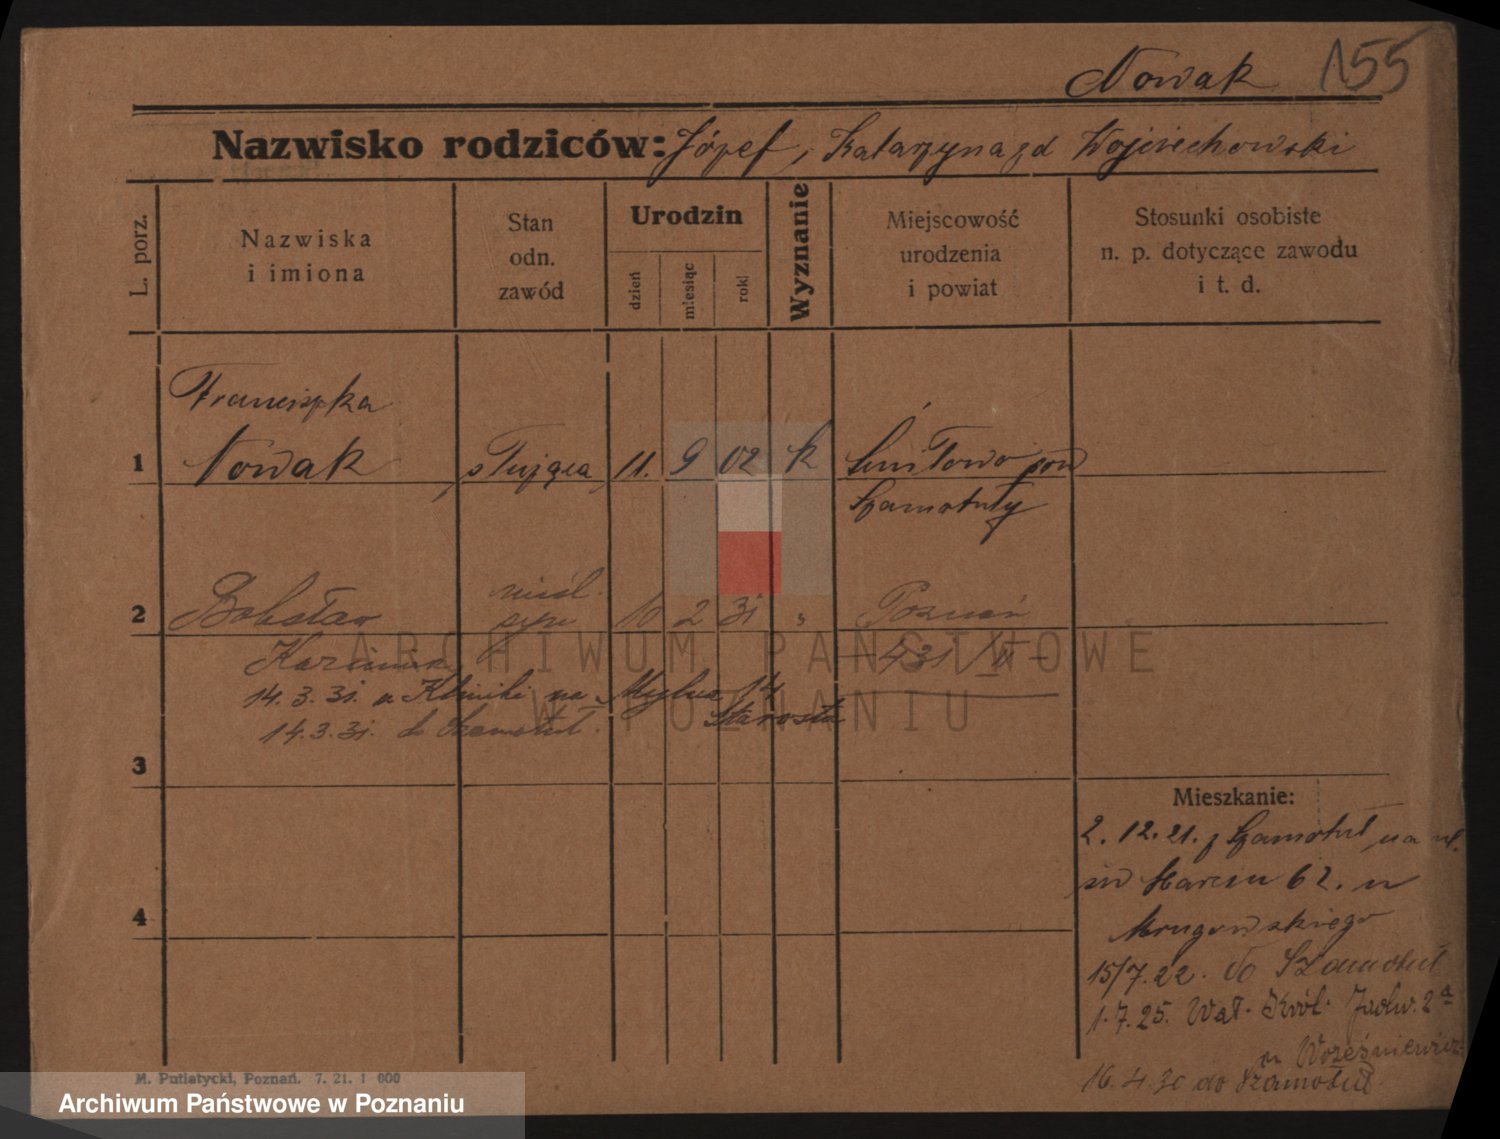 Nowak 155
Nazwisko rodziców: Józef, Katarzyna zd Wojciechowski
L. porz.
Nazwiska
i imiona
Stan
odn.
zawód
Urodzin
dzień
miesiąc
rok
Wyznanie
Miejscowość
urodzenia
i powiat
Stosunki osobiste
n. p. dotyczące zawodu
i t. d.
Franciszka
1 Nowak służąca 11. 9 02 k Śmiłowo pow
Szamotuły
nieśl.
2 Bohsław syn 10 2 31 " Poznań
Kazimierz 431/II
14.3.31. z Kliniki na 14
Starosta
14.3.31. do Szamotuł.
3
Mieszkanie:
2.12.21. z Szamotuł na ul.
św Marcin 62. u
4
Mrugowskiego
15/7.22. do Szamotuł
1.7.25. Wał. Król. Jadw. 2a
u Wrześniewicz
16.4.30 do Szamotuł
M. Putiatycki, Poznań. 7. 21. 1 000
ARCHIWUM PAŃSTWOWE
W POZNANIU
Archiwum Państwowe w Poznaniu